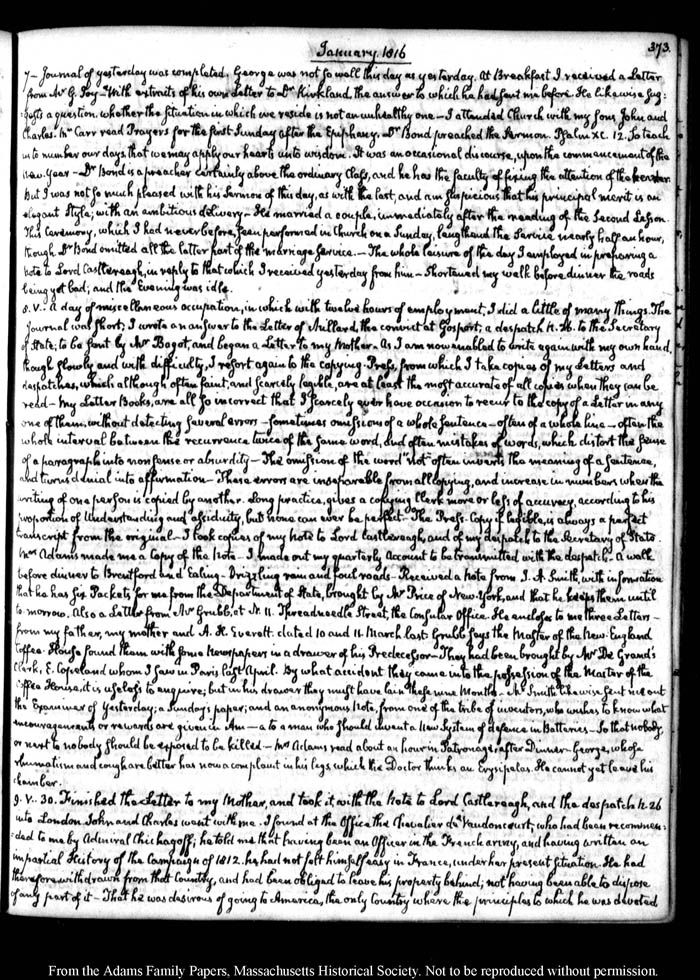 January 1816
373.
7– Journal of yesterday was completed. George was not so well this day as yesterday. At Breakfast I received a Letter
from Mr G. Joy– With extracts of his own Letter to Dr Kirkland, the answer to which he had sent me before. He likewise sug:
:gests a question, whether the situation in which we reside is not an unhealthy one – I attended Church with my Sons John and
Charles. Mr Carr read Prayers for the first Sunday after the Epiphany. Dr Bond preached the Sermon. Psalm XC. 12. So teach
us to number our days, that we may apply our hearts unto wisdom. It was an occasional discourse, upon the commencement of the
new Year – Dr Bond is a preacher certainly above the ordinary Class, and he has the faculty of fixing the attention of the hearer
But I was not so much pleased with his Sermon of this day, as with the last, and am suspicious that his principal merit is an
elegant Style; with an ambitious delivery – He married a couple, immediately after the reading of the Second Lesson.
This Ceremony, which I had never before seen performed in Church on a Sunday, lengthened the Service nearly half an hour,
though Dr Bond omitted all the latter part of the marriage Service. – The whole leisure of the day I employed in preparing a
Note to Lord Castlereagh, in reply to that which I received yesterday from him – Shortened my walk before dinner the roads
being yet bad; and the Evening was idle.
8. V. A day of miscellaneous occupation; in which with twelve hours of employment, I did a little of many things. The
Journal was short; I wrote an answer to the Letter of Nullard, the convict at Gosport; a despatch N. 26. to the Secretary
of State, to be sent by Mr Bagot, and began a Letter to my Mother. As I am now enabled to write again with my own hand,
though slowly and with difficulty, I resort again to the copying-Press, from which I take copies of my Letters and
despatches, which although often faint, and scarcely legible, are at least the most accurate of all copies when they can be
read – My Letter Books, are all so incorrect that I scarcely ever have occasion to recur to the copy of a Letter in any
one of them, without detecting several errors – sometimes omissions of a whole Sentence – often of a whole line – often the
whole interval between the recurrence twice of the same word, and often mistakes of words, which distort the sense
of a paragraph into nonsense or absurdity – The omission of the word "not" often inverts the meaning of a sentence,
and turns denial into affirmation – These errors are inseparable from all copying, and increase in numbers when the
writing of one person is copied by another. Long practice, gives a copying Clerk more or less of accuracy, according to his
proportion of Understanding and assiduity, but none can ever be perfect. The Press-Copy if legible, is always a perfect
transcript from the original – I took copies of my Note to Lord Castlereagh, and of my despatch to the Secretary of State.
Mrs Adams made me a Copy of the Note – I made out my quarterly Account to be transmitted with the despatch – A walk
before dinner to Brentford and Ealing – Drizzling rain and foul roads – Received a Note from J. A. Smith, with information
that he has six Packets for me from the Department of State, brought by Mr Price of New-York, and that he keeps them until
to-morrow. Also a Letter from Mr Grubb, at N. 11. Threadneedle Street, the Consular Office. He encloses to me three Letters –
from my father, my mother and A. H. Everett. dated 10 and 11. March last. Grubb says the Master of the New-England
Coffee-House found them with some Newspapers in a drawer of his Predecessor – They had been brought by Mr De Grand's
Clerk, E. Copeland whom I saw in Paris last April. By what accident they came into the possession of the Master of the
Coffee House, it is useless to enquire; but in his drawer they must have lain these nine Months – Mr Smith likewise sent me out
the Examiner of Yesterday; a Sunday's paper; and an anonymous Note, from one of the tribe of inventors, who wishes to know what
encouragements or rewards are given in Am – a to a man who should invent a New System of defence in Batteries – so that nobody,
or next to nobody should be exposed to be killed – Mrs Adams read about an hour in Patronage, after Dinner – George, whose
rheumatism and cough are better has now a complaint in his legs, which the Doctor thinks an Erysipelas. He cannot yet leave his
chamber.
9. V. 30. Finished the Letter to my Mother, and took it with the Note to Lord Castlereagh, and the despatch N. 26
into London. John and Charles went with me. I found at the Office the Chevalier de Vaudoncourt, who had been recommen:
:ded to me by Admiral Chichagoff; he told me that having been an Officer in the French army, and having written an
impartial History of the Campaign of 1812. he had not felt himself easy in France, under her present situation. He had
therefore withdrawn from that Country, and had been obliged to leave his property behind; not having been able to dispose
of any part of it – That he was desirous of going to America, the only Country where the principles to which he was devoted
From the Adams Family Papers, Massachusetts Historical Society. Not to be reproduced without permission.